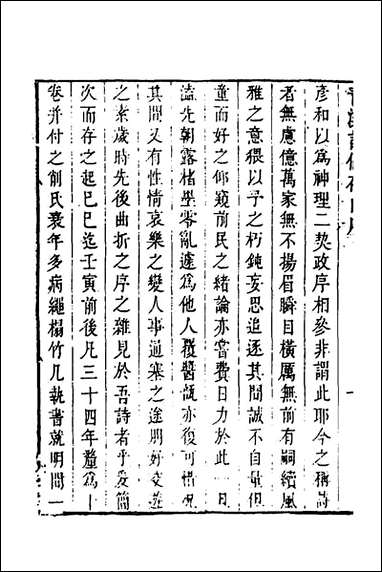 彥和以爲神理二契政序相參非謂此耶今之稱詩
者無慮億萬家無不揚眉瞬目橫厲無前有嗣續風
雅之意猥以予之朽鈍妄思追逐其間誠不自量但
童而好之仰窺前民之緒論亦嘗費日力於此一旦
溘先朝露楮墨零亂遽爲他人覆醬瓿亦復可惜况
其間又有性情哀樂之變人事通塞之途朋好交遊
之素歲時先後曲折之序之雜見於吾詩者乎爰簡
次而存之起己巳迄壬寅前後凡三十四年釐爲十
卷并付之剞氏衰年多病繩榻竹几執書就明間一